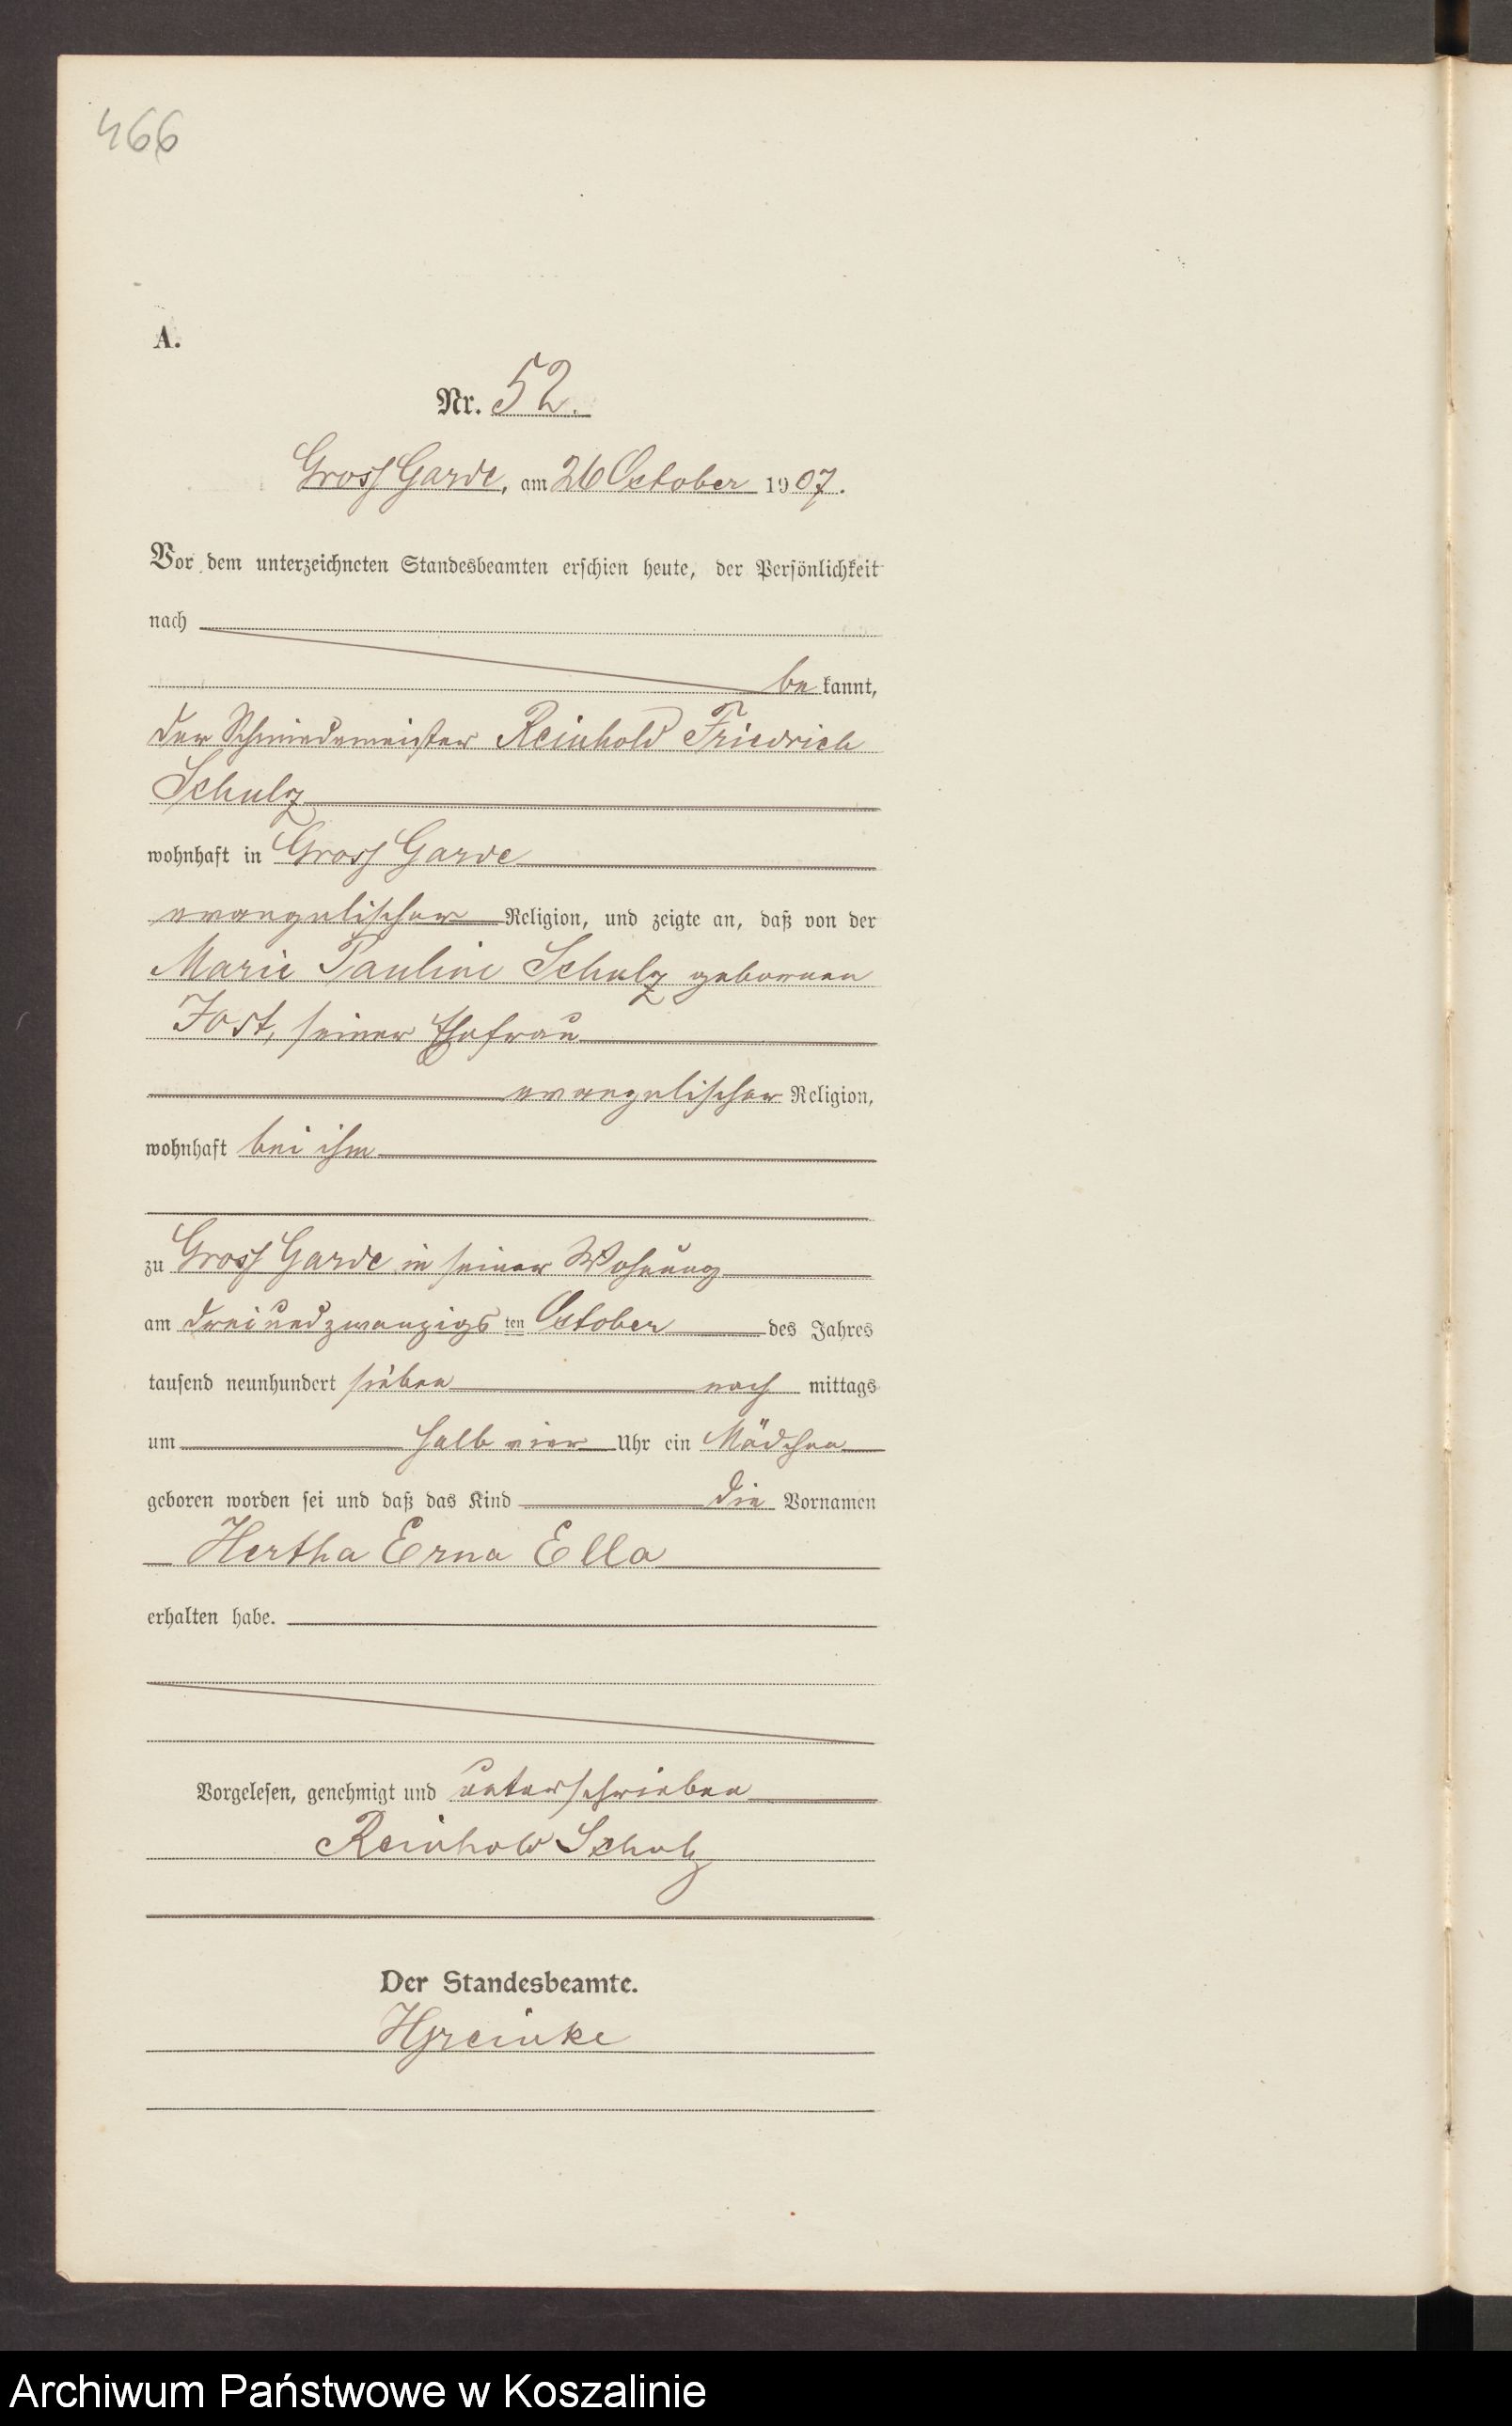 466
A.
Nr. 52.
Gross Garde, am 26 October 1907.
Vor dem unterzeichneten Standesbeamten erschien heute, der Persönlichkeit
nach
be kannt,
der Schmiedemeister Reinhold Friedrich
Schulz
wohnhaft in Gross Garde
evangelischer Religion, und zeigte an, daß von der
Marie Pauline Schulz geborenen
Jost, seiner Ehefrau
evangelischer Religion,
wohnhaft bei ihm
zu Gross Garde in seiner Wohnung
am dreiundzwanzigs ten October des Jahres
tausend neunhundert sieben nach mittags
um halb vier Uhr ein Mädchen
geboren worden sei und daß das Kind die Vornamen
Hertha Erna Ella
erhalten habe.
Vorgelesen, genehmigt und unterschrieben
Reinhold Schulz
Der Standesbeamte.
Archiwum Państwowe w Koszalinie